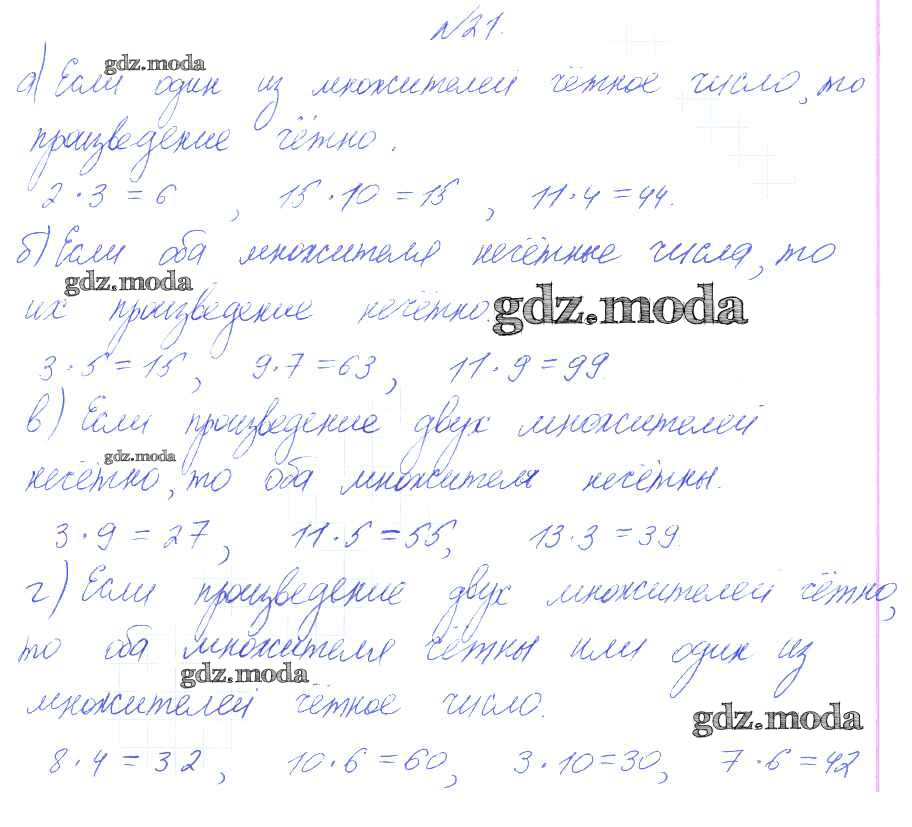 №21.
gdz.moda
а) Если один из множителей чётное число, то
произведение чётно.
2·3=6, 15·10=15, 11·4=44.
б) Если оба множителя нечётные числа, то
gdz.moda
их произведение нечётно.
gdz.moda
3·5=15, 9·7=63, 11·9=99.
в) Если произведение двух множителей
gdz.moda
нечётно, то оба множителя нечётны.
3·9=27, 11·5=55, 13·3=39.
г) Если произведение двух множителей чётно,
то оба множителя чётны или один из
gdz.moda
множителей чётное число.
gdz.moda
8·4=32, 10·6=60, 3·10=30, 7·6=42